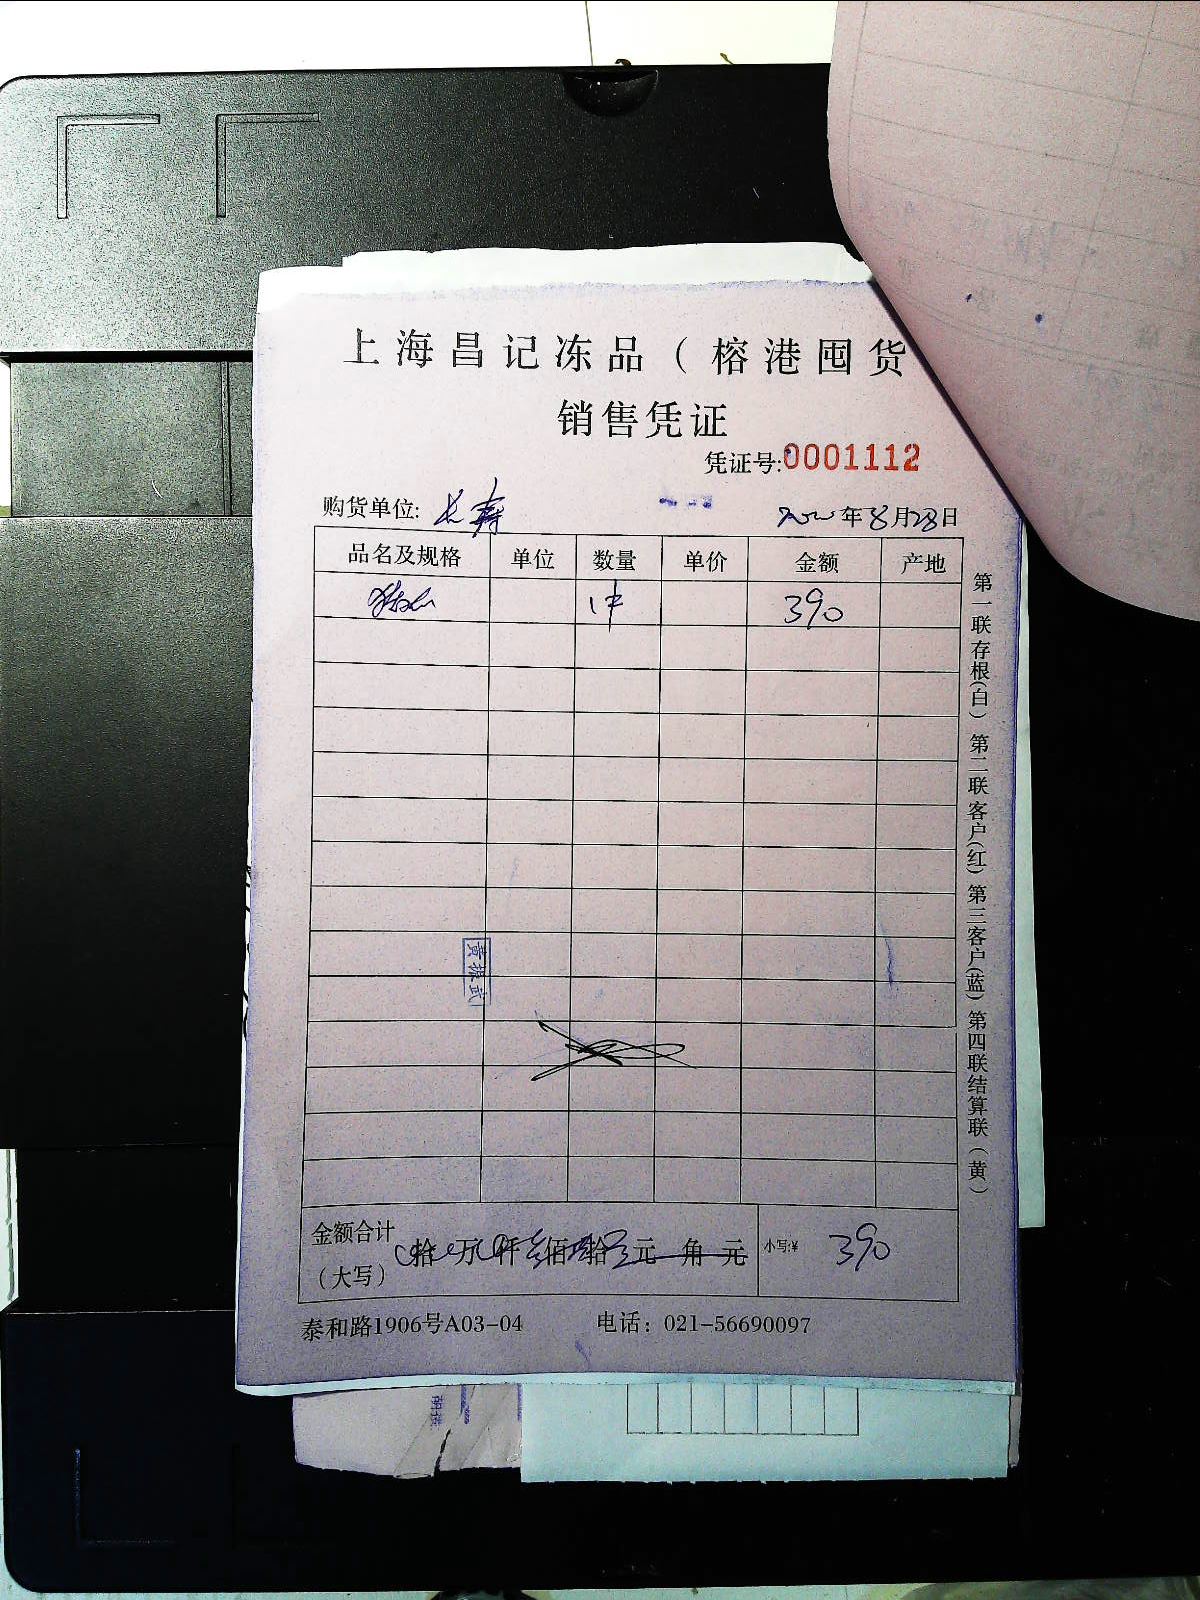 上海昌记冻品（榕港囤货
销售凭证
凭证号:0001112
购货单位: 长寿 年8月28日
品名及规格 单位 数量 单价 金额 产地
1件 390
黄振武
金额合计（大写） 拾 万 仟 佰 拾 元 角 元 小写:¥ 390
泰和路1906号A03-04 电话：021-56690097
第一联存根(白) 第二联客户(红) 第三客户(蓝) 第四联结算联(黄)